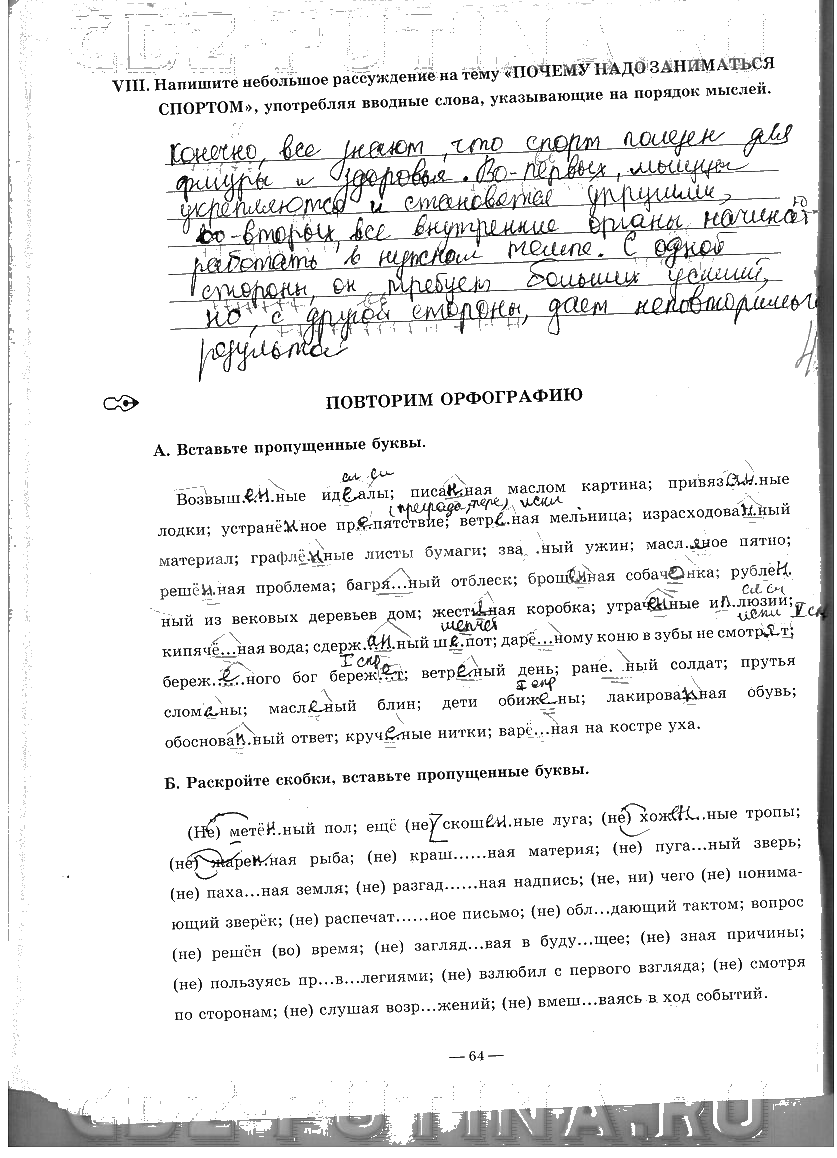 GDZ-PUTINA.RU
VIII. Напишите небольшое рассуждение на тему «ПОЧЕМУ НАДО ЗАНИМАТЬСЯ
СПОРТОМ», употребляя вводные слова, указывающие на порядок мыслей.
Конечно, все знают, что спорт полезен для
фигуры и здоровья. Во-первых, мышцы
укрепляются и становятся упругими,
во-вторых, все внутренние органы начинают
работать в нужном темпе. С одной
стороны, он требует больших усилий,
но, с другой стороны, дает неповторимый
результат
ПОВТОРИМ ОРФОГРАФИЮ
А. Вставьте пропущенные буквы.
Возвыш.ен.ные идеалы; писанная маслом картина; привязан.ные
(преграда, пере) искл
лодки; устранённое препятствие; ветре.ная мельница; израсходованный
материал; графлённые листы бумаги; зва...ный ужин; масл.яное пятно;
решён.ная проблема; багря...ный отблеск; брошенная собачонка; рублен.
ный из вековых деревьев дом; жестяная коробка; утраченные ил.люзии;
кипячё...ная вода; сдерж.ан.ный шёпот; дарё...ному коню в зубы не смотрят;
береж.ё...ного бог бережёт; ветреный день; ране...ный солдат; прутья
сломаны; масленый блин; дети обижены; лакированная обувь;
обоснован.ный ответ; кручёные нитки; варё...ная на костре уха.
Б. Раскройте скобки, вставьте пропущенные буквы.
(Не) метён.ный пол; ещё (не) скошен.ные луга; (не) хожен...ные тропы;
(не) жарен.ная рыба; (не) краш......ная материя; (не) пуга...ный зверь;
(не) паха...ная земля; (не) разгад......ная надпись; (не, ни) чего (не) понима-
ющий зверёк; (не) распечат......ное письмо; (не) обл...дающий тактом; вопрос
(не) решён (во) время; (не) загляд...вая в буду...щее; (не) зная причины;
(не) пользуясь пр...в...легиями; (не) взлюбил с первого взгляда; (не) смотря
по сторонам; (не) слушая возр...жений; (не) вмеш...ваясь в ход событий.
— 64 —
GDZ-PUTINA.RU